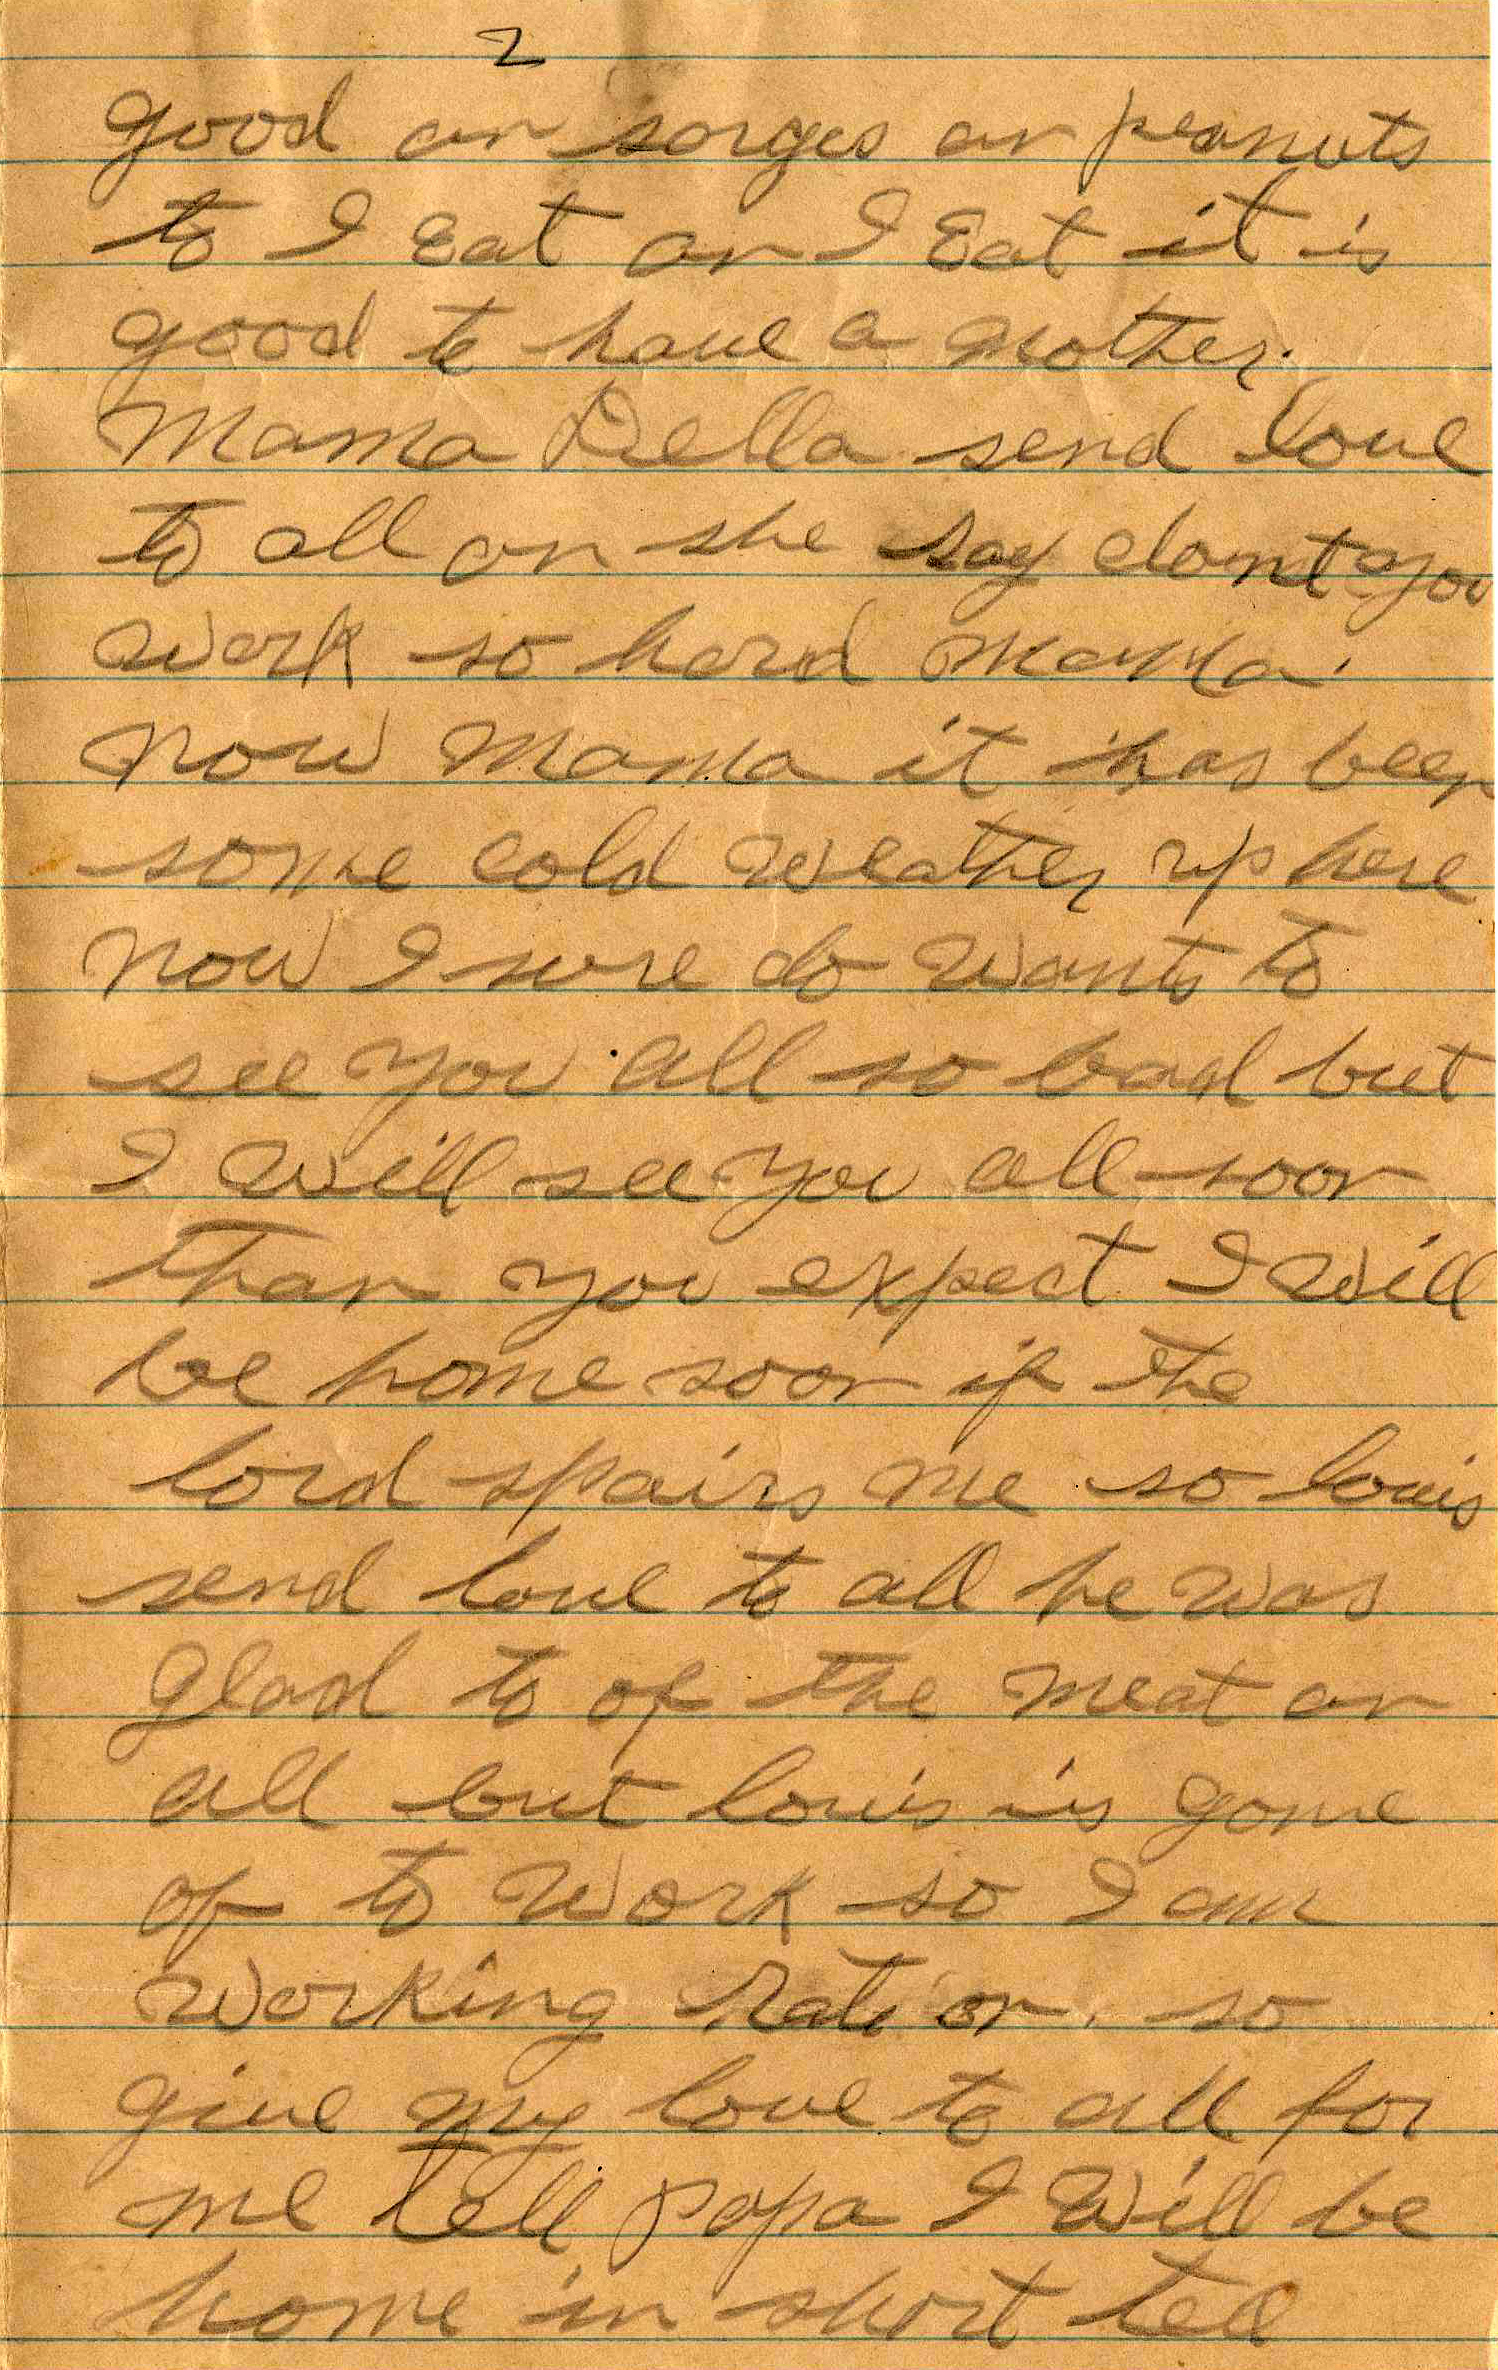 2
good an sorges an peanuts
to I Eat an I Eat it is
good to have a mother.
Mama Della send love
to all an she say dont you
work so hard mama.
now mama it has been
some cold weather up here
now I sure do wants to
see you all so bad but
I will see you all soon
than you expect I will
be home soon if the
lord spairs me so louis
send love to all he was
glad to of the meat an
all but louis is gone
of to work so I am
working on. so
give my love to all for
me tell papa I will be
home in short tell